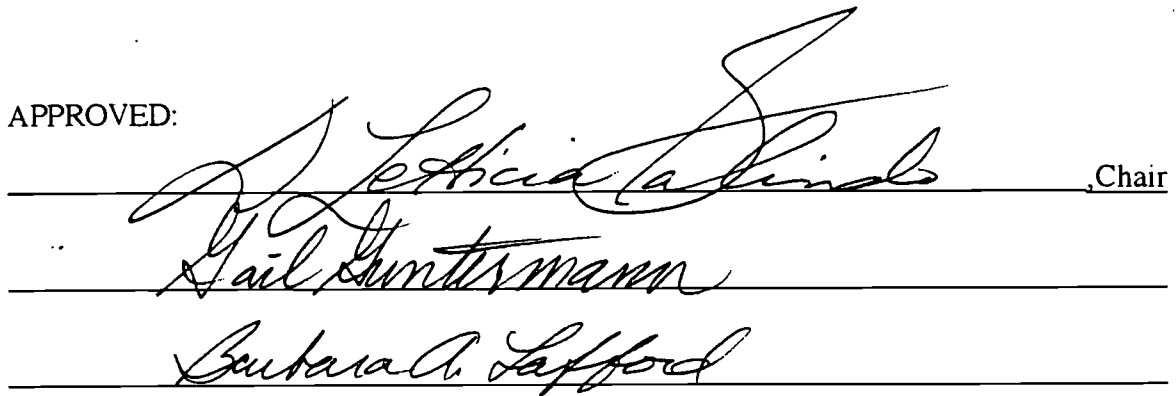 APPROVED:
D. Letticia Galindo ,Chair
Gail Guntermann
Barbara A. Lafford